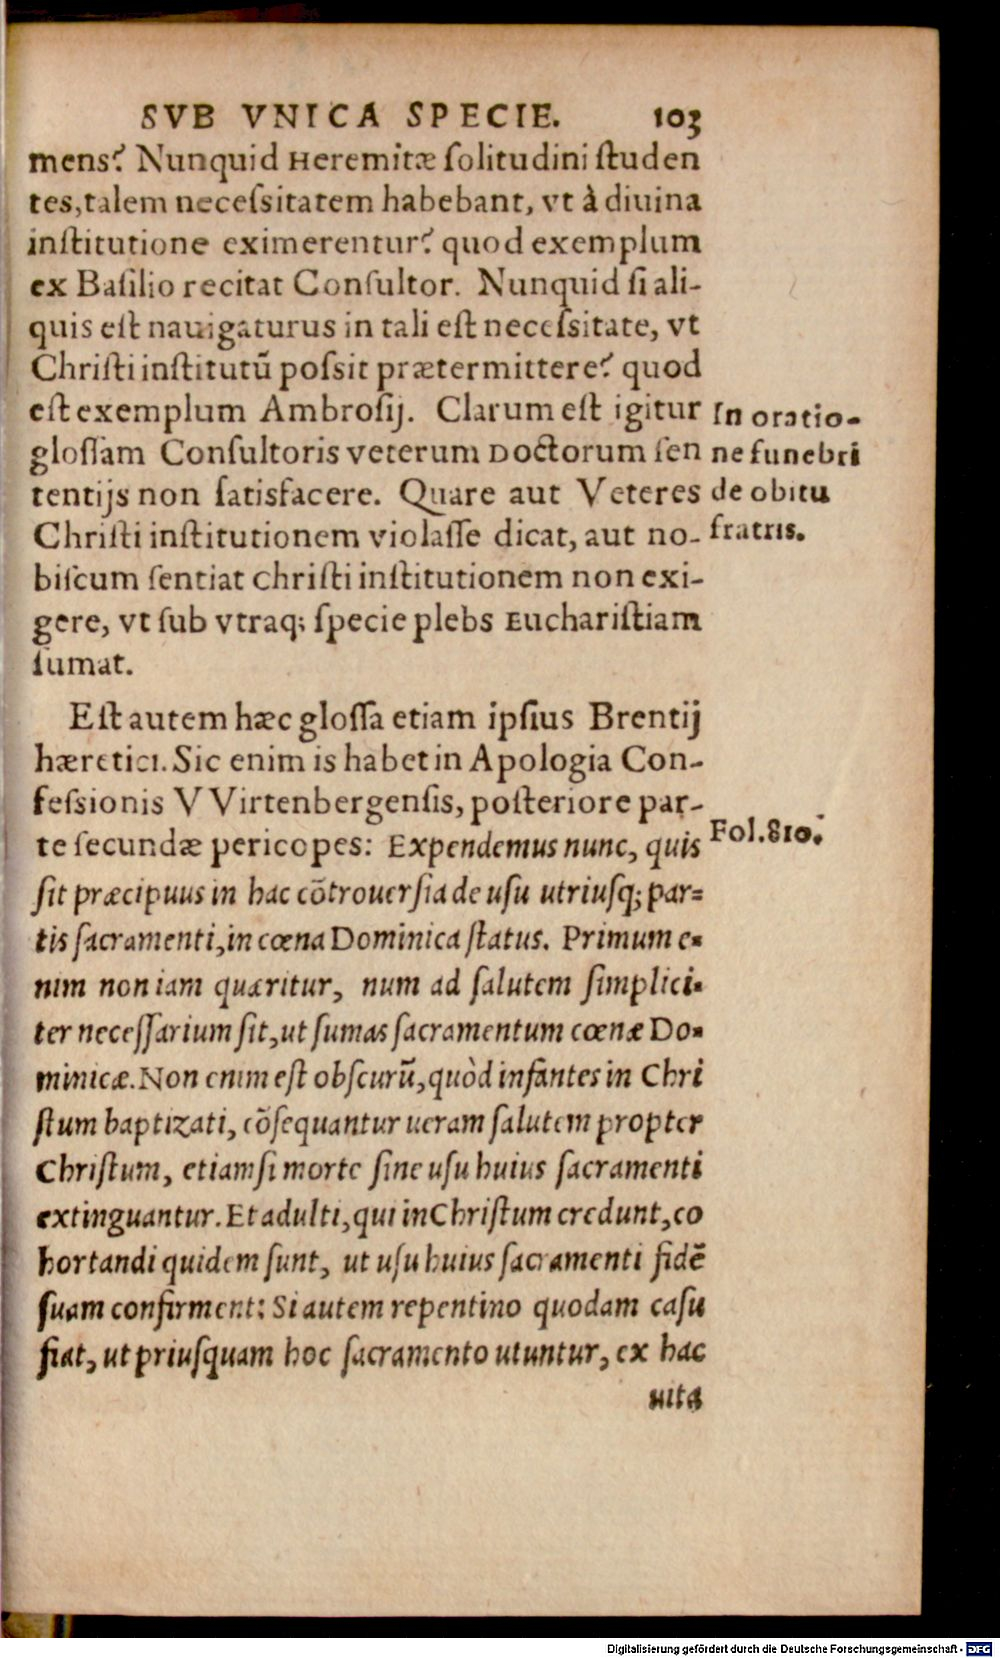 SVB VNICA SPECIE. 103
mens? Nunquid Heremitæ ſolitudini ſtuden
tes, talem neceſsitatem habebant, vt à diuina
inſtitutione eximerentur? quod exemplum
ex Baſilio recitat Conſultor. Nunquid ſi ali-
quis eſt nauigaturus in tali eſt neceſsitate, vt
Chriſti inſtitutū poſsit prætermittere? quod
eſt exemplum Ambroſij. Clarum eſt igitur
gloſſam Conſultoris veterum Doctorum ſen
tentijs non ſatisfacere. Quare aut Veteres
Chriſti inſtitutionem violaſſe dicat, aut no-
biſcum ſentiat Chriſti inſtitutionem non exi-
gere, vt ſub vtraq; ſpecie plebs Euchariſtiam
ſumat.
In oratio-
ne funebri
de obitu
fratris.
Eſt autem hæc gloſſa etiam ipſius Brentij
hæretici. Sic enim is habet in Apologia Con-
feſsionis VVirtenbergenſis, poſteriore par-
te ſecundæ pericopes: Expendemus nunc, quis
ſit præcipuus in hac cōtrouerſia de uſu utriuſq; par-
tis ſacramenti, in cœna Dominica ſtatus. Primum e-
nim non iam quæritur, num ad ſalutem ſimplici-
ter neceſſarium ſit, ut ſumas ſacramentum cœnæ Do-
minicæ. Non enim eſt obſcurū, quòd infantes in Chri
ſtum baptizati, cōſequantur ueram ſalutem propter
Chriſtum, etiamſi morte ſine uſu huius ſacramenti
extinguantur. Et adulti, qui in Chriſtum credunt, co
hortandi quidem ſunt, ut uſu huius ſacramenti fidē
ſuam confirment: Si autem repentino quodam caſu
fiat, ut priuſquam hoc ſacramento utuntur, ex hac
uita
Fol. 810.
Digitalisierung gefördert durch die Deutsche Forschungsgemeinschaft - DFG